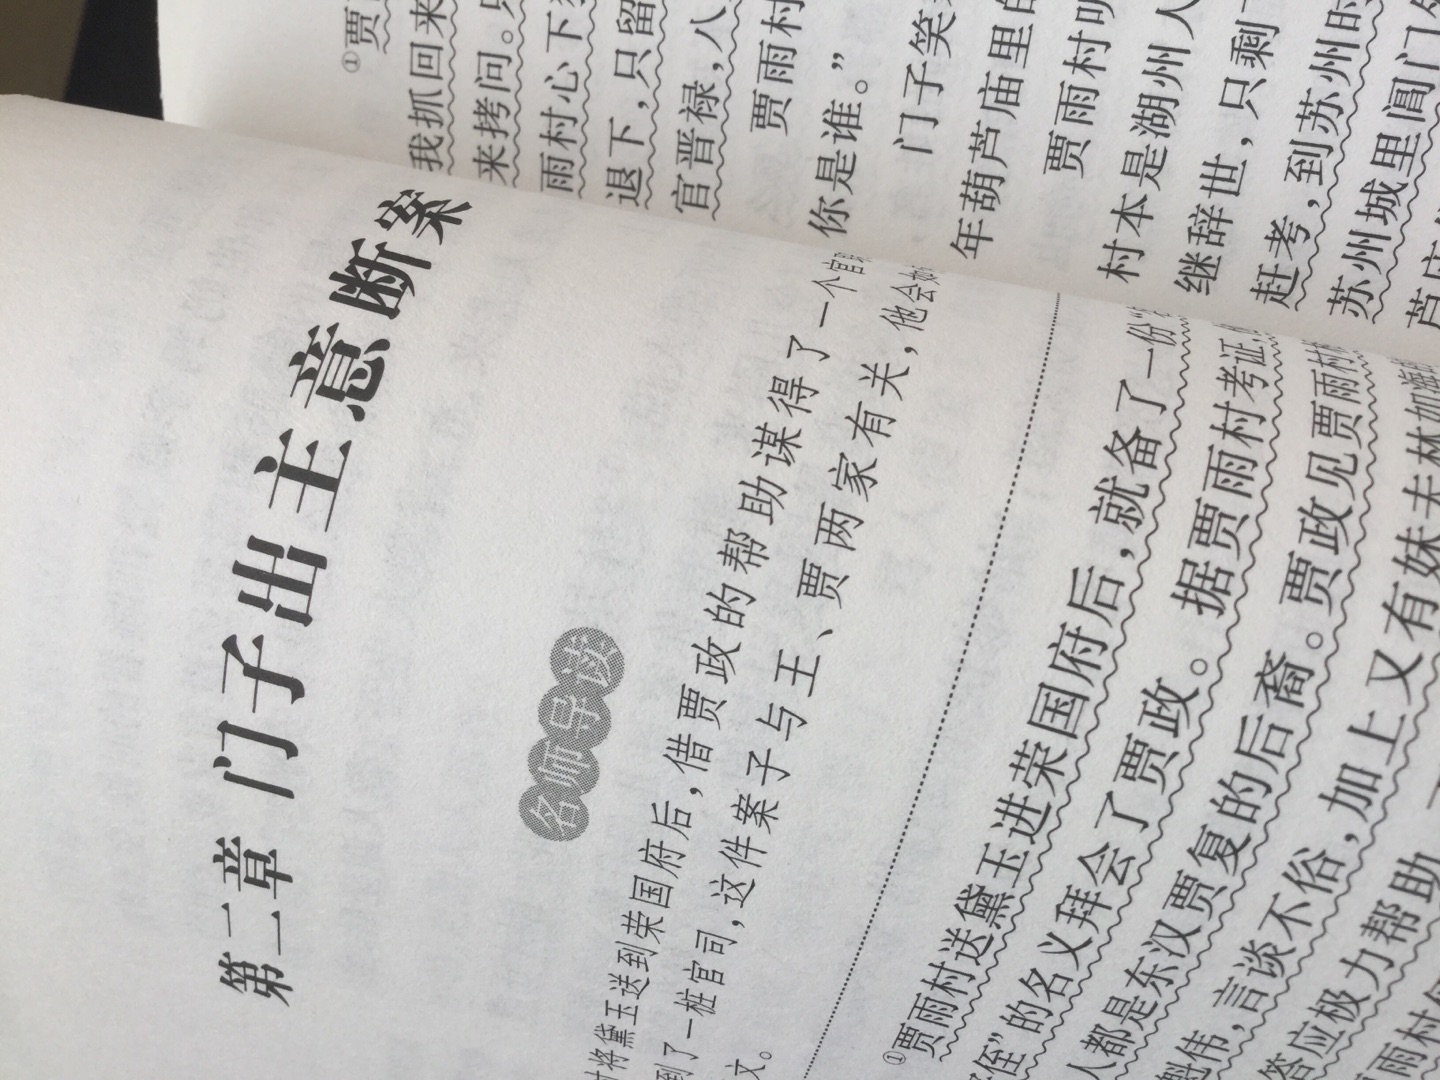 第二章 门子出主意断案
名师导读
村将黛玉送到荣国府后，借贾政的帮助谋得了一个官
到了一桩官司，这件案子与王、贾两家有关，他会如
文。
①贾雨村送黛玉进荣国府后，就备了一份“
侄”的名义拜会了贾政。据贾雨村考证，
人都是东汉贾复的后裔。贾政见贾雨村
魁伟，言谈不俗，加上又有妹夫林如海
答应极力帮助
贾雨村
①贾
我抓回来
来拷问。
雨村心下
退下，只留
官晋禄，八
贾雨村
你是谁。”
门子笑
年葫芦庙里
贾雨村
村本是湖州人
继辞世，只剩
赶考，到苏州时
苏州城里阊门